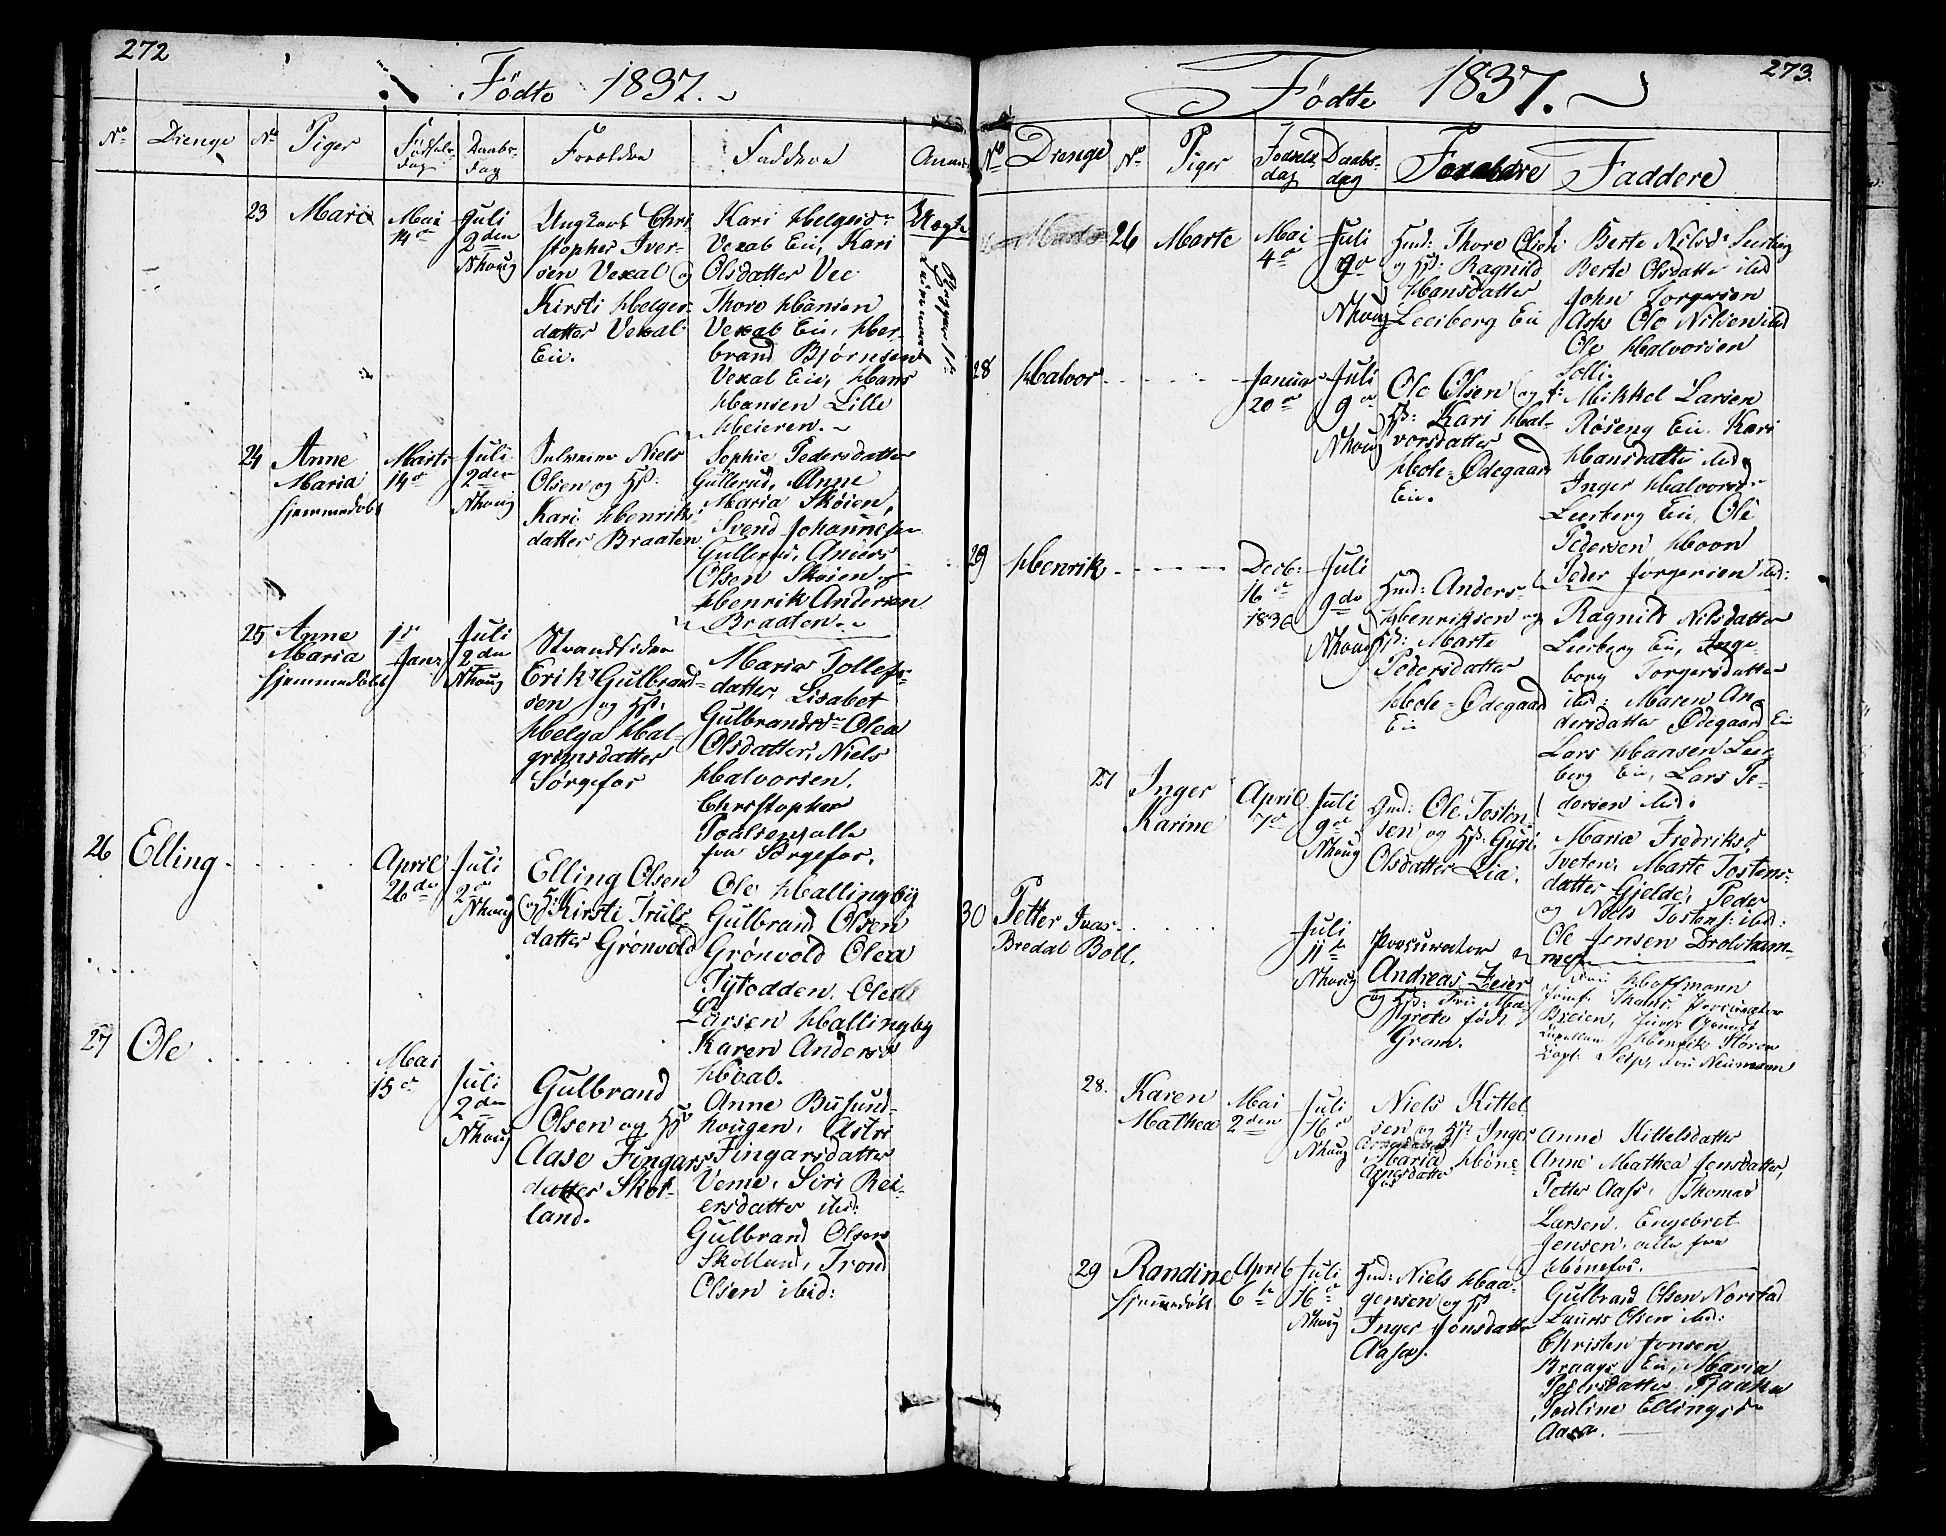 272
Födte 1837.
No Drenge No Piger Födsels-dag Daabs-dag Forældre Faddere Anm
23 Mari
Mai 14de
Juli 2den Nhoug
Ungkarl Chri
stopher Iver-
sen Vexal og
Kirsti Helges-
datter Vexal
Eie.
Kari Helgesd:
Vexal Eie, Kari
Olsdatter Vee
Thore Hansen
Vexal Eie, Her-
brand Björnsen
Vexal Eie, Hans
Hansen Lille
Heieren.
Uægte
24 Anne
Maria
hjemmedöbt
Marts 14de
Juli 2den Nhoug
Niels
Olsen og H:
Kari Henriks
datter Braaten
Sophie Pedersdatter
Gullerud, Anne
Maria Skóien,
Svend Johannesen
Gullerud, Anders
Olsen Skóien og
Henrik Andersen
Braaten.
25 Anne
Maria
hjemmedöbt
1de Janr
Juli 2den Nhoug
Strandsidder
Erik Gulbrand-
sen og H:
Helga Hal-
grimsdatter
Sörgefos
Maria Tollefs-
datter, Lisabet
Gulbrandsd: Olea
Olsdatter, Niels
Halvorsen,
Christopher
Poulsen, alle
fra Sörgefos.
26 Elling
April 26de
Juli 2den Nhoug
Elling Olsen
og H: Kirsti Truls
datter Grönvold
Ole Hallingby
Gulbrand Olsen
Grönvold Olea
Tytodden, Ole
Larsen Hallingby
Karen Andersd
Hóab.
27 Ole
Mai 15de
Juli 2den Nhoug
Gulbrand
Olsen og H:
Aase Fingars
datter Skol-
land.
Anne Busund-
hougen, Astri
Fingarsdatter
Veme, Siri Rei-
ersdatter ibid:
Gulbrand Olsen
Skolland, Trond
Olsen ibid:
273.
Födte 1837.
No Drenge No Piger Födsels dag Daabs-dag Forældre Faddere
26 Marte
Mai 4de
Juli 9de Nhoug
Hmd: Thore Olsen
og H: Ragnild
Hansdatter
Leeiberg Eie
Berte Nilsd:
Berte Olsdatter ibid
John Torgersen
Ask Ole Nilsen ibid
Ole Halvorsen
Solli.
28 Halvor
Januar 20de
Juli 9de Nhoug
Ole Olsen og
H: Kari Hal-
vorsdatter
Hole-Ødegaard
Eie.
Mikkel Larsen
Röseng Eie. Kari
Hansdatter ibid,
Inger Halvorsd:
Leeiberg Eie, Ole
Pedersen Hoon
Peder Jörgensen ibid:
29 Henrik
Decb: 16de 1836
Juli 9de Nhoug
Hmd: Anders
Henriksen og
H: Marte
Pedersdatter
Hole-Ødegaard
Eie
Ragnild Nilsdatter
Leeiberg Eie, Inge-
borg Torgersdatter
ibid: Maren An-
dersdatter Ødegaard Eie
Lars Hansen Lee-
berg Eie, Lars Pe-
dersen ibid.
27 Inger
Karine
April 7de
Juli 9de Nhoug
Gmd: Ole Tosten-
sen og H: Guri
Olsdatter Lia.
Maria Fredriksd:
Tveten, Marte Tostens-
datter Gjelde, Peder
og Niels Tostens: ibid:
Ole Jensen Drolsham-
mer
30 Petter Ivar
Bredal Boll.
Juli 11te Nhoug
Procurator
Andreas Feier
og H: Fru Mar
grete född
Gram.
Fru Hoffmann
Jomf. Thams Procurator
Breien,
Henrik Stören
Capt: Seip, Fru Neumann
28. Karen
Mathea
Mai 2den
Juli 16de Nhoug
Niels Kittel
sen og H: Inger
Maria Höne-
fos
Arnesdatter
Anne Kittelsdatter
Anne Mathea Jensdatter,
Petter Aass, Thomas
Larsen, Engebret
Jensen, alle fra
Hönefos.
29 Randine
hjemmedöbt
April 6te
Juli 16de Nhoug
Hmd: Niels Haa-
gensen og H:
Inger Jonsdatter
Aasa.
Gulbrand Olsen Norstad
Laurs Olsen ibid:
Christen Jonsen
Braagr Eie, Maria
Pedersdatter
Pauline Ellingsd:
Aasa.